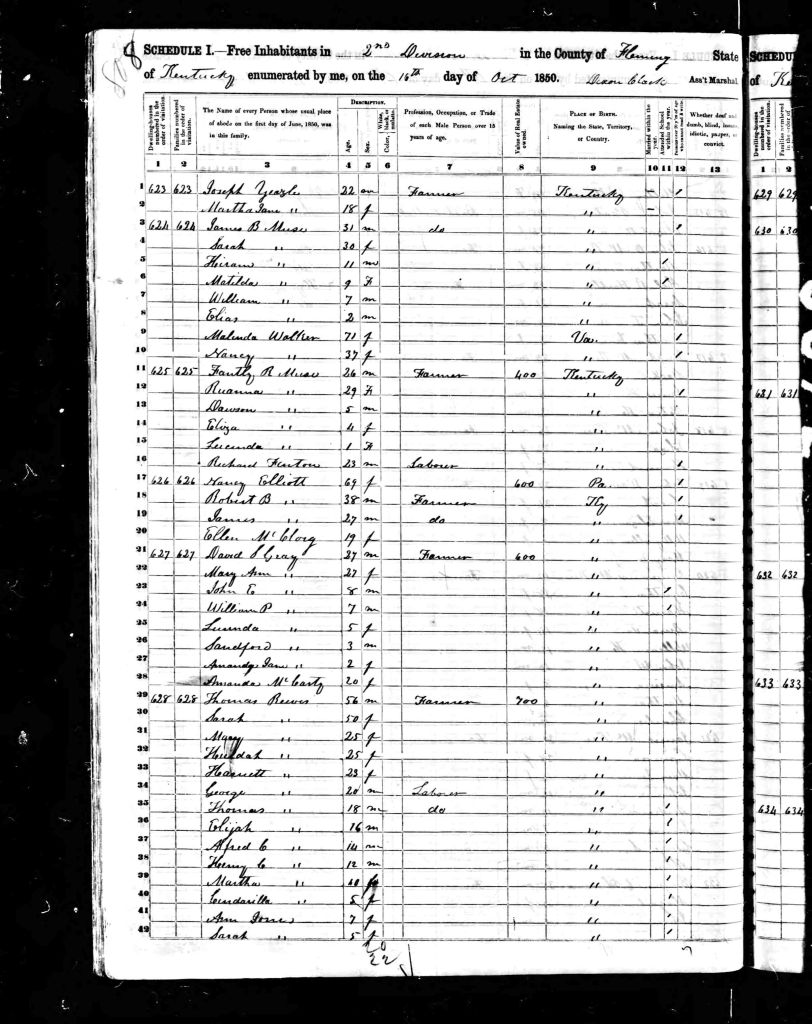 SCHEDULE I.—Free Inhabitants in 2nd Division in the County of Fleming State
of Kentucky enumerated by me, on the 16th day of Oct 1850. Dixon Clark Ass't Marshal
Dwelling-houses numbered in the order of visitation.
Families numbered in the order of visitation.
The Name of every Person whose usual place of abode on the first day of June, 1850, was in this family.
DESCRIPTION.
Age.
Sex.
White, black, or mulatto. Color,
Profession, Occupation, or Trade of each Male Person over 15 years of age.
Value of Real Estate owned.
PLACE OF BIRTH. Naming the State, Territory, or Country.
Married within the year.
Attended School within the year.
Whether deaf and dumb, blind, insane, idiotic, pauper, or convict.
1 2 3 4 5 6 7 8 9 10 11 12 13
1 623 623 Joseph Yeazle 22 m Farmer Kentucky – 1
2 Martha Jane " 18 f " –
3 624 624 James B Muse 31 m do " 1
4 Sarah " 30 f "
5 Hiram " 11 m " 1
6 Matilda " 9 F " 1
7 William " 7 m "
8 Elias " 2 m "
9 Malinda Walker 71 f Va. 1
10 Nancy " 37 f " 1
11 625 625 Fantly R Muse 26 m Farmer 400 Kentucky
12 Ruanna " 29 F " 1
13 Dawson " 5 m "
14 Eliza " 4 f "
15 Lucinda " 1 F "
16 Richard Fenton 23 m Laborer " 1
17 626 626 Nancy Elliott 69 f 600 Pa. 1
18 Robert B " 38 m Farmer Ky 1
19 James " 27 m do " 1
20 Ellen McClorg 19 f "
21 627 627 David S Gray 27 m Farmer 600 "
22 Mary Ann " 27 f "
23 John E " 8 m " 1
24 William P " 7 m " 1
25 Lucinda " 5 f "
26 Sandford " 3 m "
27 Amandy Jane " 2 f "
28 Amanda McCarty 20 f "
29 628 628 Thomas Reeves 56 m Farmer 700 "
30 Sarah " 50 f "
31 Mary " 25 f "
32 Huldah " 25 f "
33 Harriett " 23 f "
34 George " 20 m Laborer "
35 Thomas " 18 m do " 1
36 Elijah " 16 m " 1
37 Alfred C " 14 m " 1
38 Henry C " 12 m " 1
39 Martha " 10 f " 1
40 Cindarilla " 5 f " 1
41 Ann Jones 7 f " 1
42 Sarah " 5 f " 1
20
22
SCHEDU
of Ke
Dwelling-houses numbered in the order of visitation.
Families numbered in the order of visitation.
1 2
629 629
630 630
631 631
632 632
633 633
634 634